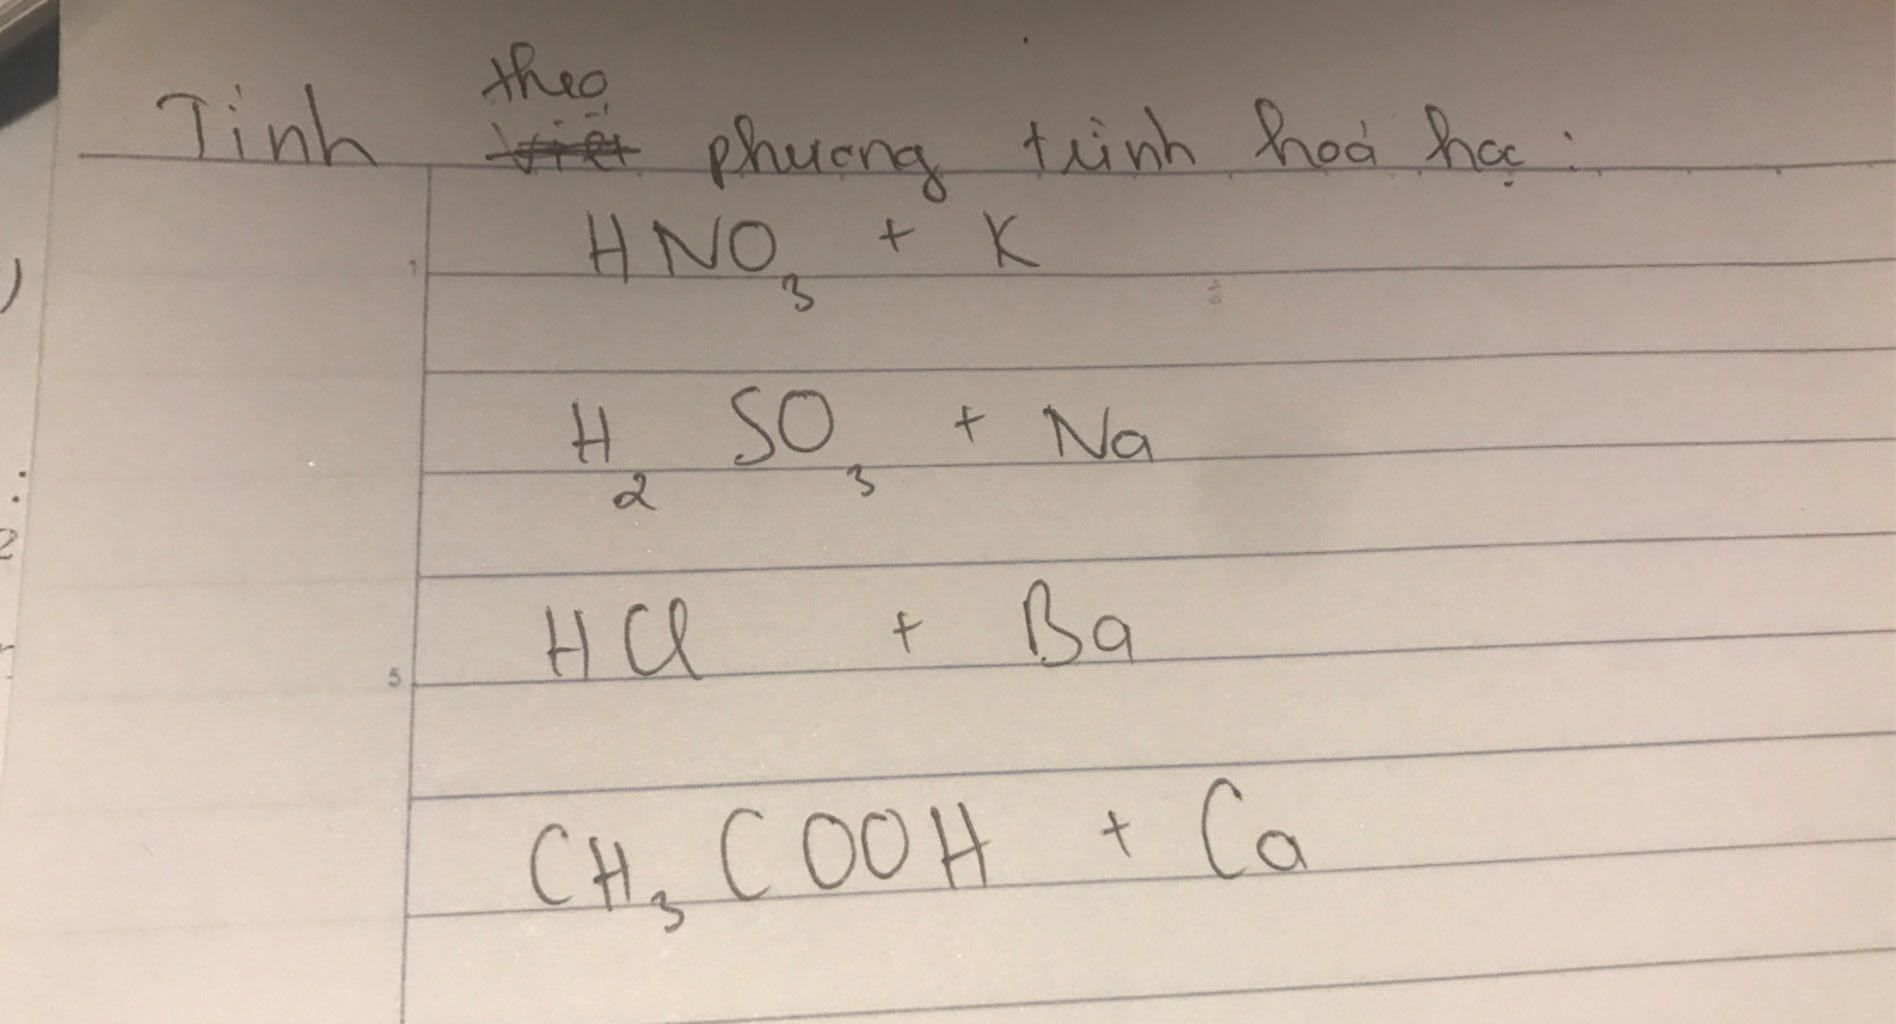 Tính theo phương trình hoá học:
HNO₃ + K
H₂ SO₃ + Na
HCl + Ba
CH₃ COOH + Ca